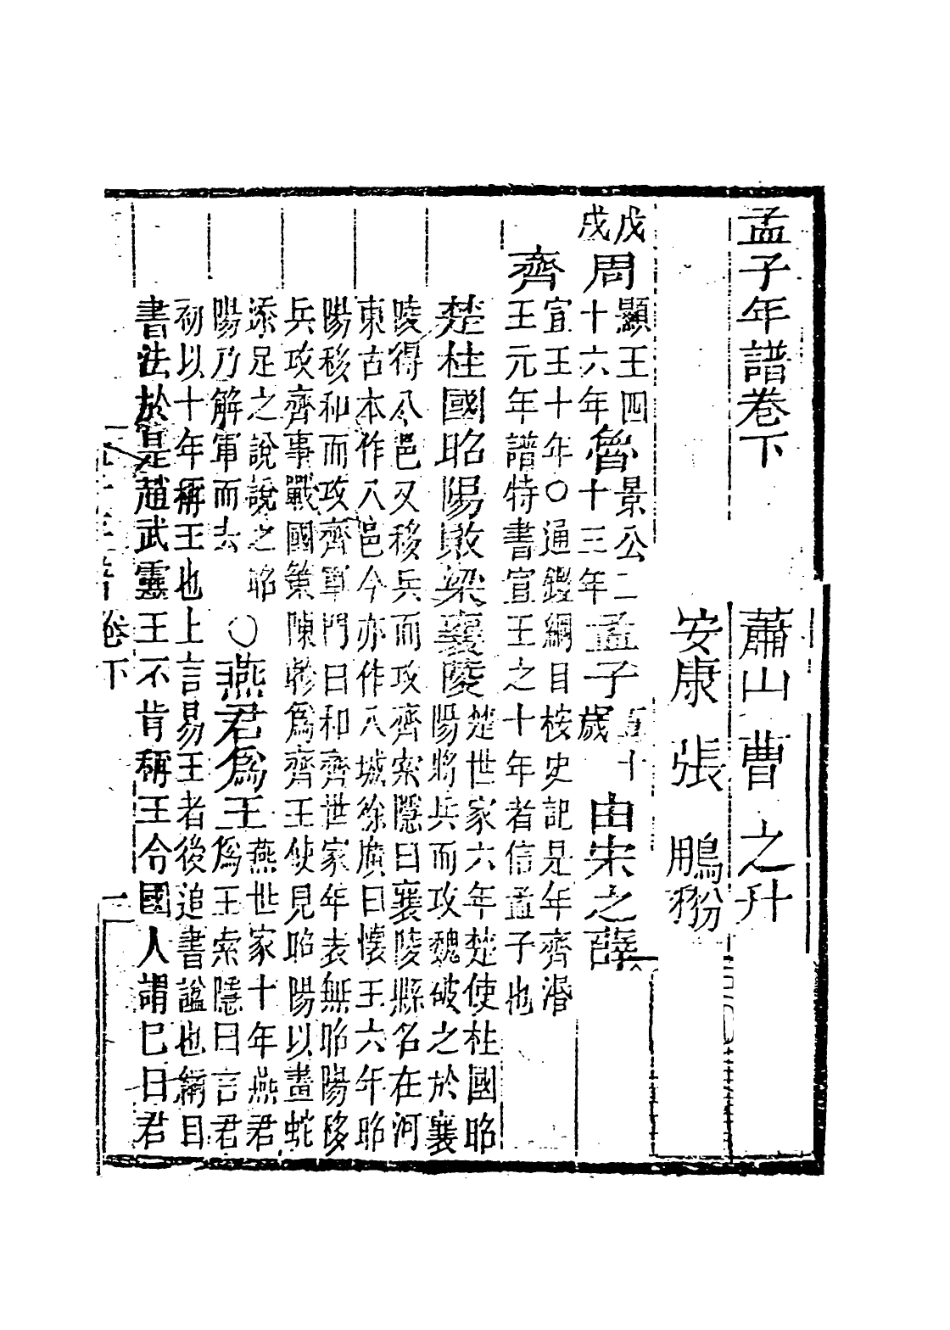 孟子年譜卷下
蕭山 曹之升
安康 張鵬翂
戊戌 周 顯王四十六年 魯 景公二十三年 孟子 五十歲 由宋之薛
齊 宣王十年○通鑑綱目桉史記是年齊湣
王元年譜特書宣王之十年者信孟子也
楚柱國昭陽敗梁襄陵 楚世家六年楚使柱國昭
陽將兵而攻魏破之於襄
陵得八邑又移兵而攻齊索隱曰襄陵縣名在河
東古本作八邑今亦作八城徐廣曰懷王六年昭
陽移和而攻齊軍門曰和齊世家年表無昭陽移
兵攻齊事戰國策陳軫爲齊王使見昭陽以畫蛇
添足之說說之昭
陽乃解軍而去
○燕君爲王 燕世家十年燕君
爲王索隱曰言君
初以十年稱王也上言易王者後追書謚也綱目
書法於是趙武靈王不肯稱王令國人謂已曰君
卷下
一